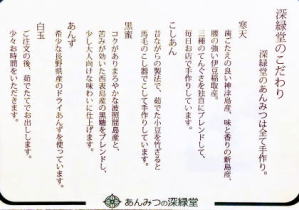 深緑堂のこだわり
深緑堂のあんみつは全て手作り。
寒天
歯ごたえの良い神津島産、味と香りの新島産、
腰の強い伊豆稲取産。
三種のてんぐさを独自にブレンドして、
毎日お店で手作りしています。
こしあん
昔ながらの製法で、茹でた小豆を竹ざると
馬毛のこし器でこして手作りしています。
黒蜜
コクがありまろやかな波照間島産と、
苦みが効いた西表島産の黒糖をブレンドし、
少し大人向けな味わいに仕上げます。
あんず
希少な長野県産のドライあんずを使っています。
白玉
ご注文の後、茹でたてでお出しします。
少々お時間をいただきます。
あんみつの深緑堂